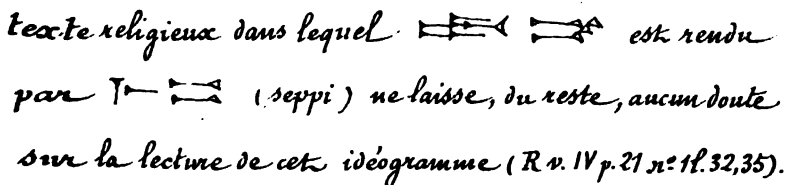 texte religieux dans lequel est rendu
par (seppi) ne laisse, du reste, aucun doute
sur la lecture de cet idéogramme (R v. IV p. 21 nº 1 l. 32,35).